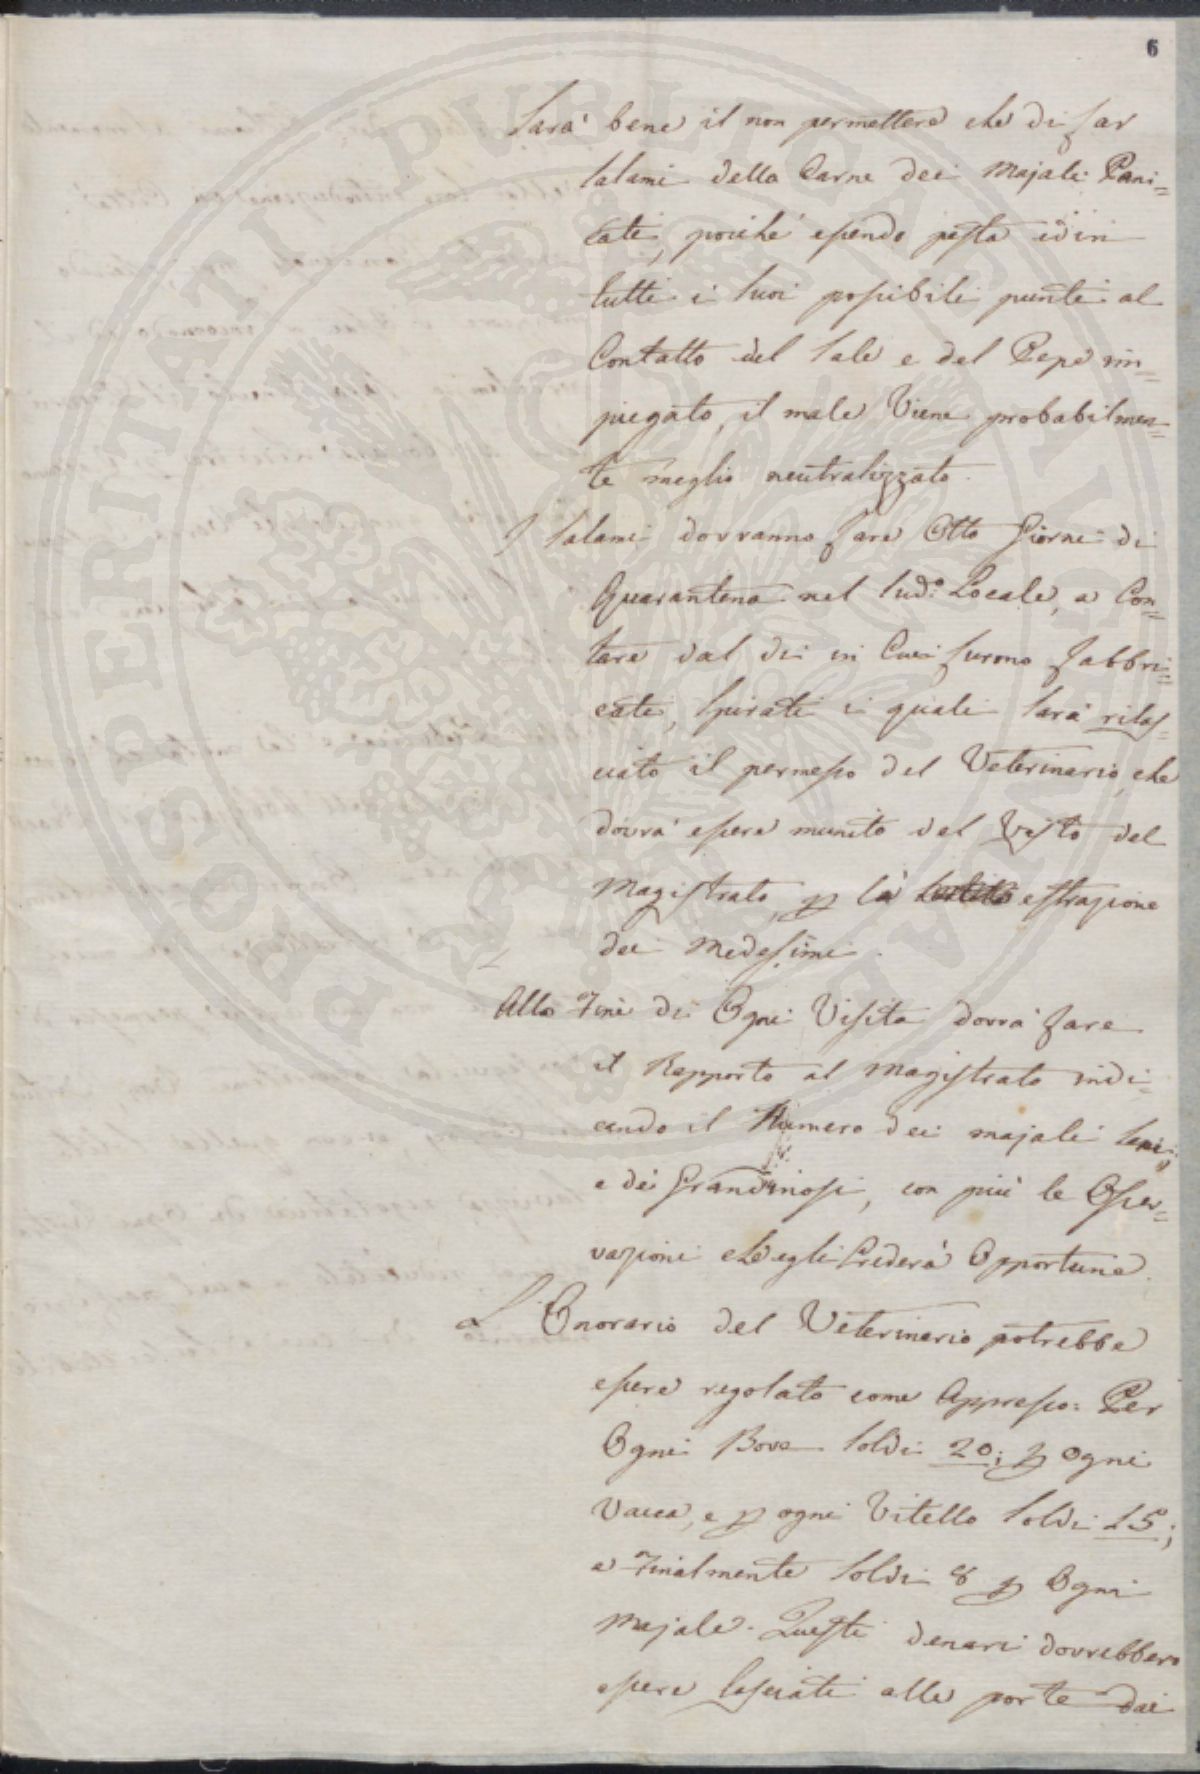 6
Sarà bene il non permettere che di far
Salami della Carne dei Majali Pani=
cati, poiché essendo pesta ed in
tutti i suoi possibili punti al
Contatto del Sale e del Pepe im=
piegato, il male Viene probabilmen=
te meglio neutralizzato.
I Salami dovranno fare Otto Giorni di
Quarantena nel sud.o Locale, a Con=
tare dal dì in Cui furono fabbri=
cati, Spirati i quali Sarà rilas=
ciato il permesso del Veterinario, che
dovrà essere munito del Visto del
Magistrato, p la estrazione
dei Medesimi.
Alla Fine di Ogni Visita dovrà fare
il Rapporto al Magistrato indi=
cando il Numero dei majali Sani,
e dei Grandinosi, con più le Osser=
vazioni che egli Crederà Opportune.
L'Onorario del Veterinario potrebbe
essere regolato come Appresso: Per
Ogni Bove Soldi 20; p ogni
Vacca, e p ogni Vitello Soldi 15;
e Finalmente Soldi 8 p Ogni
Majale. Questi denari dovrebbero
essere lasciati alle porte dai
PROSPERITATI PUBLICAE AUGENDAE